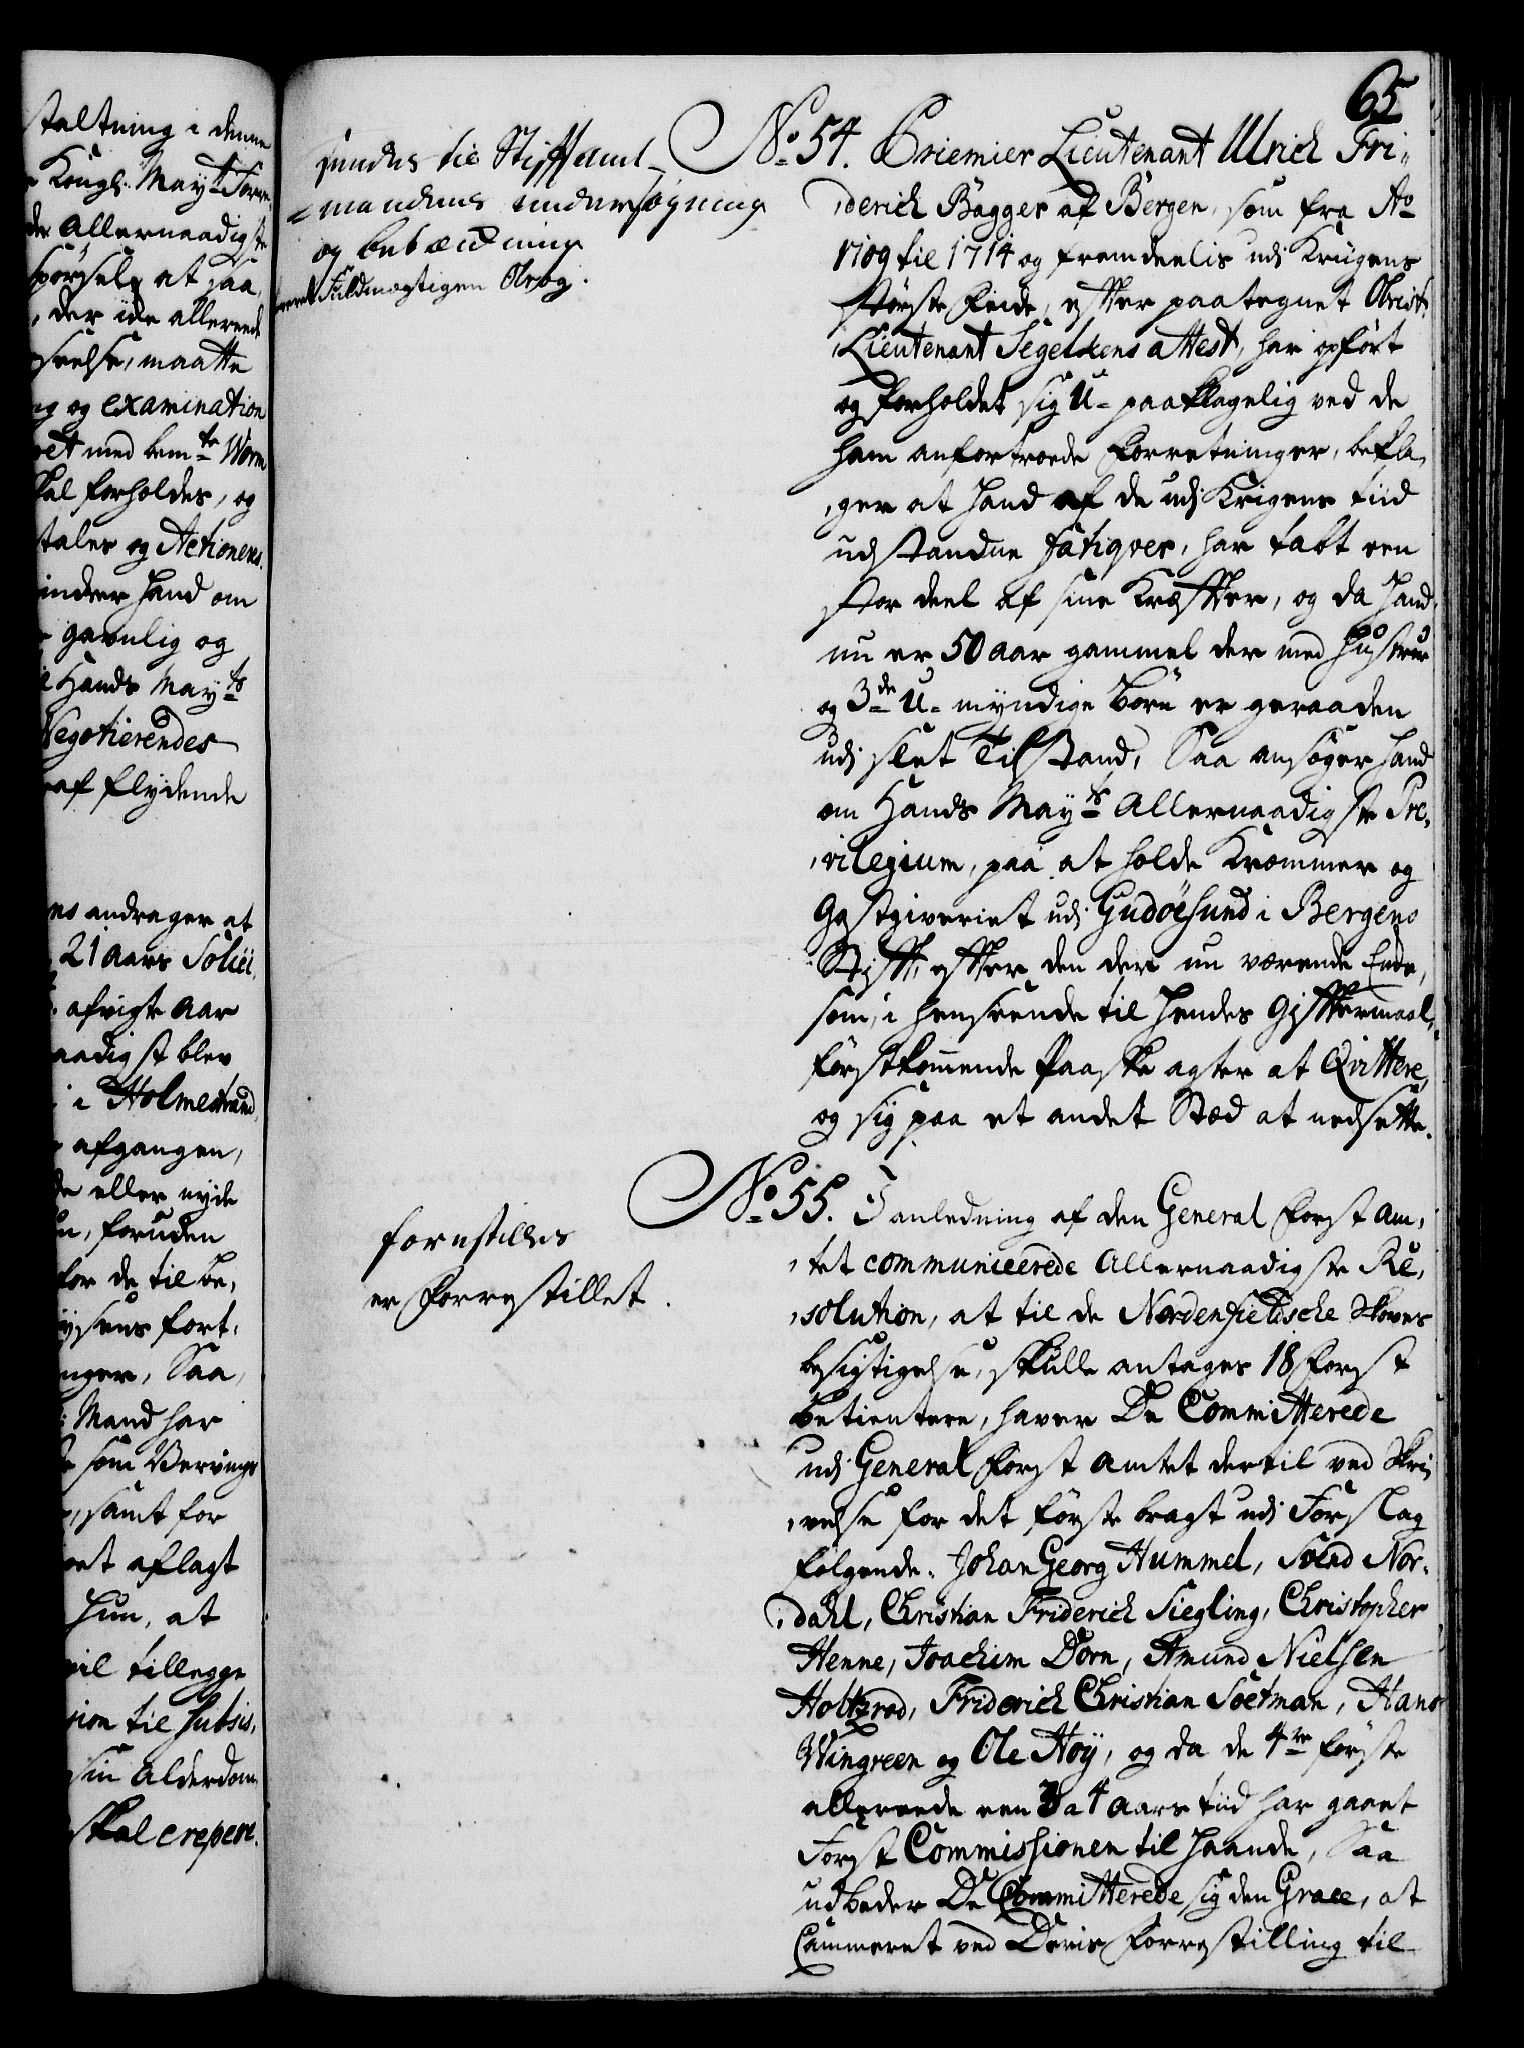 staltning i denne
Kongl: Mayts Torve,
der allernaadigste
spørsel, at saa,
der ide allereede
seelse, maatte
ng og examination
et med bemte Worm
skal forholdes, og
tales og Actionens
indser hand om
gavnlig og
Hands Mayts
Negotierendes
af flydende
andrager at
21 aars Solici,
afvigte aar
naadigst blev
i Holmestrand
afgangen,
de eller nyde
foruden
for de til be,
fort,
nger, Saa,
Mand har
som Vervings
samt for
et aflagt
hun, at
vil tillegge
sion til subsis,
sin Alderdom,
skal crepere.
65
sendes til Stiftamt-
mandens undersøgning
og betænkning
Fuldmægtigen Olrog.
No 54. Priemier Lieutenant Ulrich Fri,,
,derich Bagger af Bergen, som fra Ao
1709 til 1714 og fremdeelis udi Krigens
største Feide, efter paategnet Obrist,
,Lieutenant Segelkens attest, har opført
og forholdet sig u-paaklagelig ved de
ham anfortroede Forretninger, bekla,
,ger at hand af de udi Krigens tiid
udstandne fatiqver, har tabt een
stor deel af sine Kræfter, og da hand
nu er 50 aar gammel der med hustrue
og 3de u-myndige børn er geraaden
udi slet Tilstand, Saa ansøger hand
om Hands Mayts Allernaadigste Pre,
,vilegium, paa at holde Kræmmer og
Gæstgiveriet udi Gudøesund i Bergens
Stift, efter den der nu værende Enke,
som, i henseende til hendes Giftermaal,
førstkommende Paaske agter at Qvittere,
og sig paa et andet Stæd at nedsætte.
forestilles
er Forrestillet.
No 55. I anledning af den General Forst Am,
,tet communicerede Allernaadigste Re,
,solution, at til de Nordenfieldsche Skoves
besigtigelse, skulle antages 18 Forst
betientere, haver De Committerede
udi General Forst Amtet dertil ved Skri
,velse for det første bragt udi Forslag
følgende. Johan Georg Hummel, Svend Nor-
,dahl, Christian Friderich Siegling, Christopher
Henne, Joachim Dorn, Amund Nielsen
Holtzrod, Friderich Christian Soetman, Hans
Wingreen og Ole Høy, og da de 4re første
allereede een 3 a 4 aars tiid har gaaet
Forst Commissionen til haande, Saa
udbeder De Committerede sig den Grace, at
Cammeret ved Deris Forrestilling til